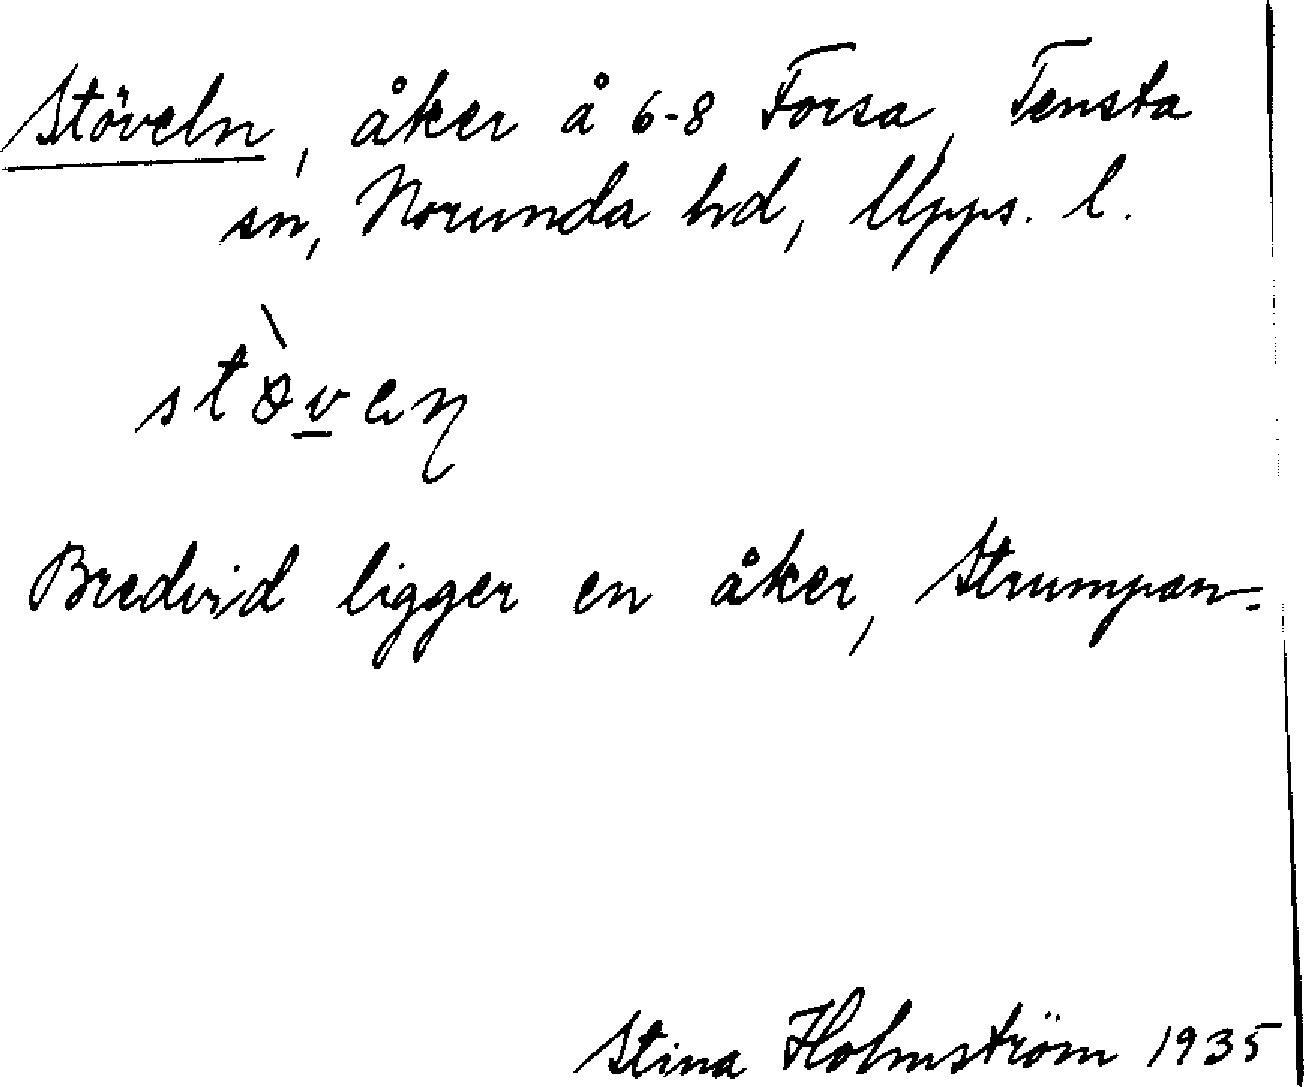 Stöveln, åker å 6-8 Forsa, Tensta
sn, Norunda hd, Upps. l.
Bredvid ligger en åker, Strumpan.
Stina Holmström 1935